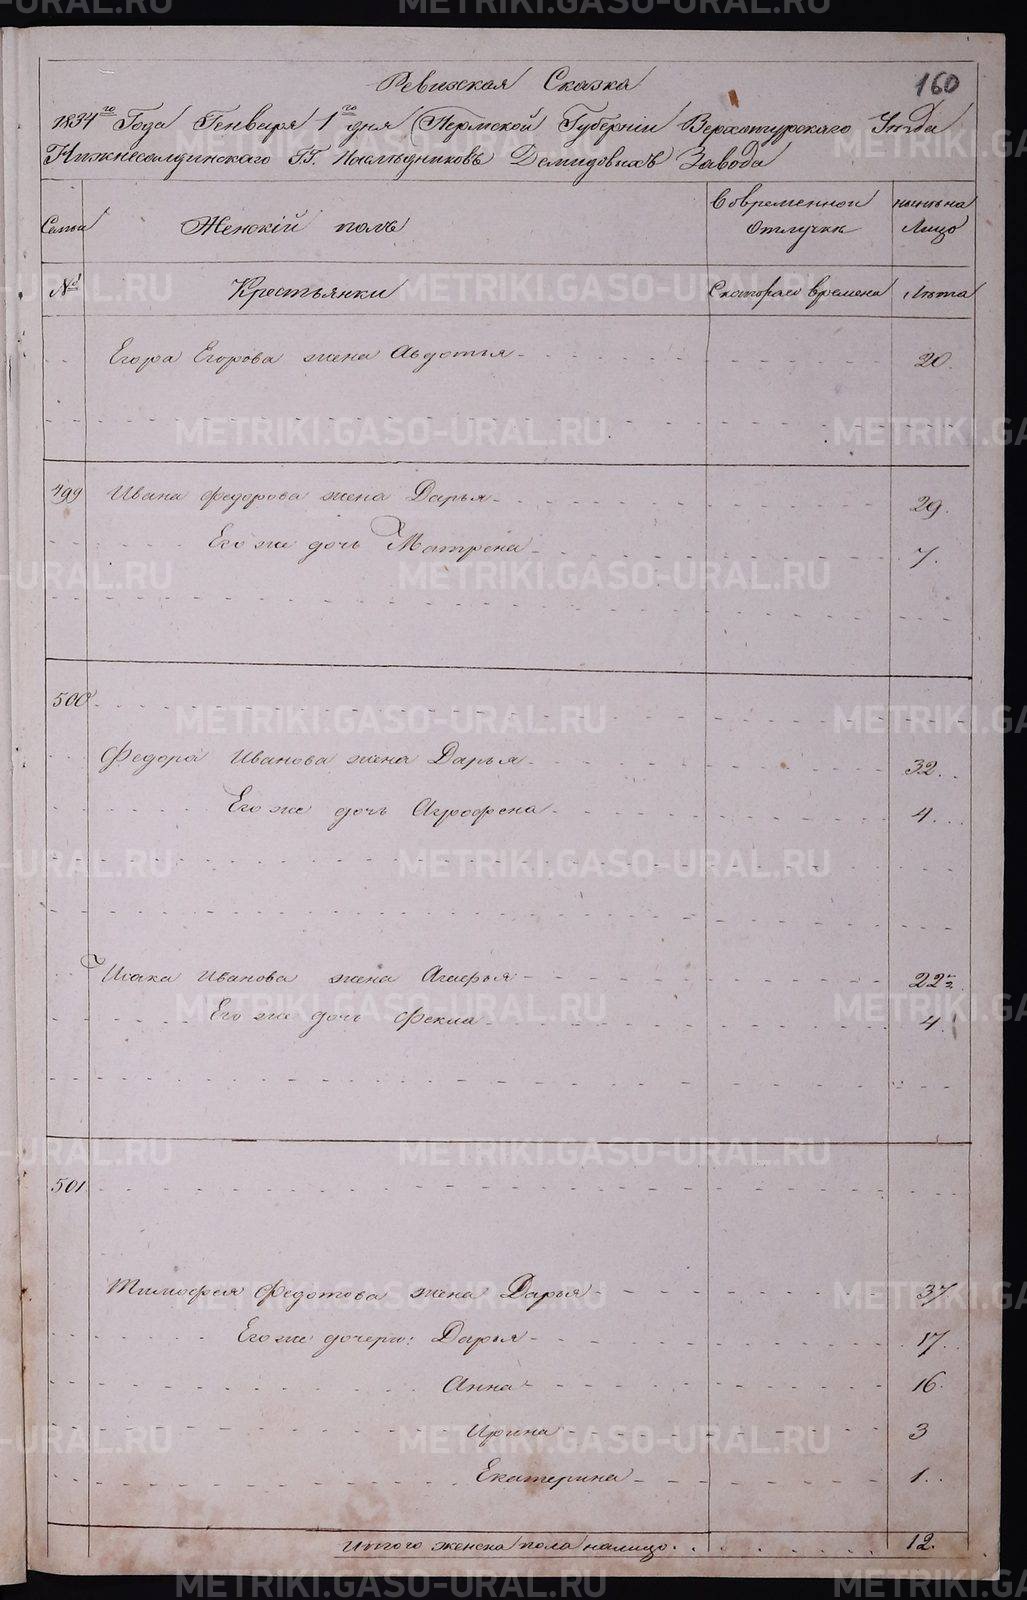 160
Ревизская Сказка
1834го Года Генваря 1го дня Пермской Губернiи Верхотурскаго Уѣзда
Нижнесалдинскаго ГГ. Наслѣдниковъ Демидовыхъ Завода
Семьи Женскiй полъ Во временной отлучкѣ нынѣ на Лицо
№ Крестьянки Скотораго времени Лѣта
Егора Егорова жена Авдотья 20.
499 Ивана Федорова жена Дарья 29.
Его же дочь Матрена 7.
500
Федора Иванова жена Дарья 32.
Его же дочь Аграфена 4.
Исака Иванова жена Агафья 22½
Его же дочь Фекла 4.
501.
Тимофея Федотова жена Дарья 37.
Его же дочери: Дарья 17.
Анна 16.
Ирина 3
Екатерина 1.
Итого женска пола налицо 12.
METRIKI.GASO-URAL.RU